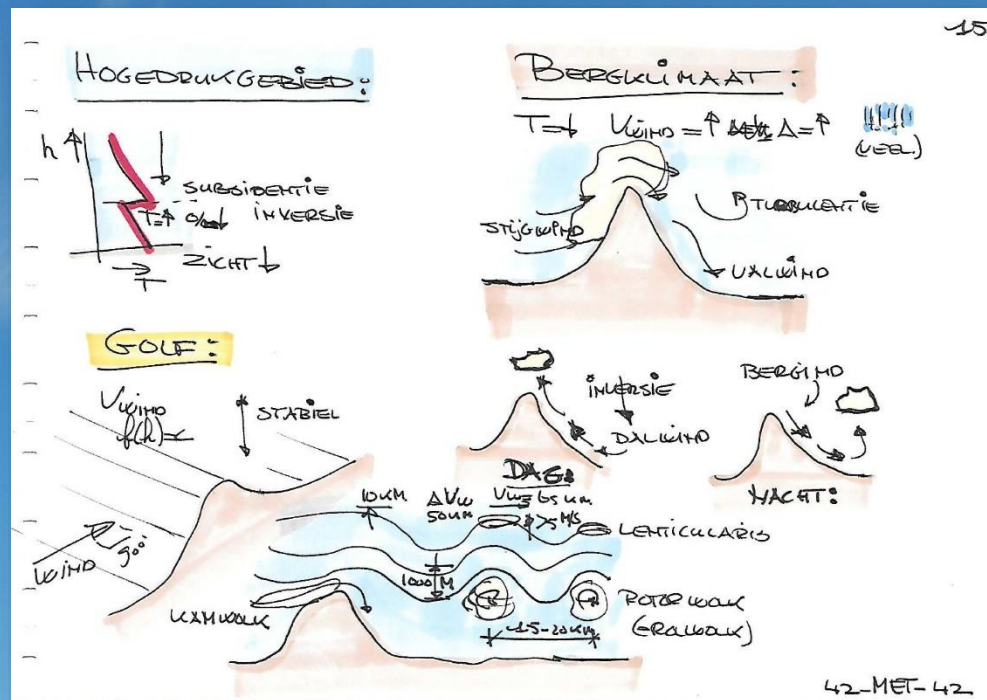 15
HOGEDRUKGEBIED:
h ↑
SUBSIDENTIE
INVERSIE
T=↑
ZICHT ↓
T
BERGKLIMAAT:
T=↓ VWIND=↑ Δ=↑
(VEEL)
STIJGWIND
TURBULENTIE
VALWIND
GOLF:
VWIND
f(h)=
STABIEL
WIND
90°
INVERSIE
DALWIND
DAG:
BERGWIND
NACHT:
10KM
ΔVW
50KM
VW= 65KM
>5 M/S
LENTICULARIS
1000 M
KAMWOLK
ROTORWOLK
15-20KM
42-MET-42